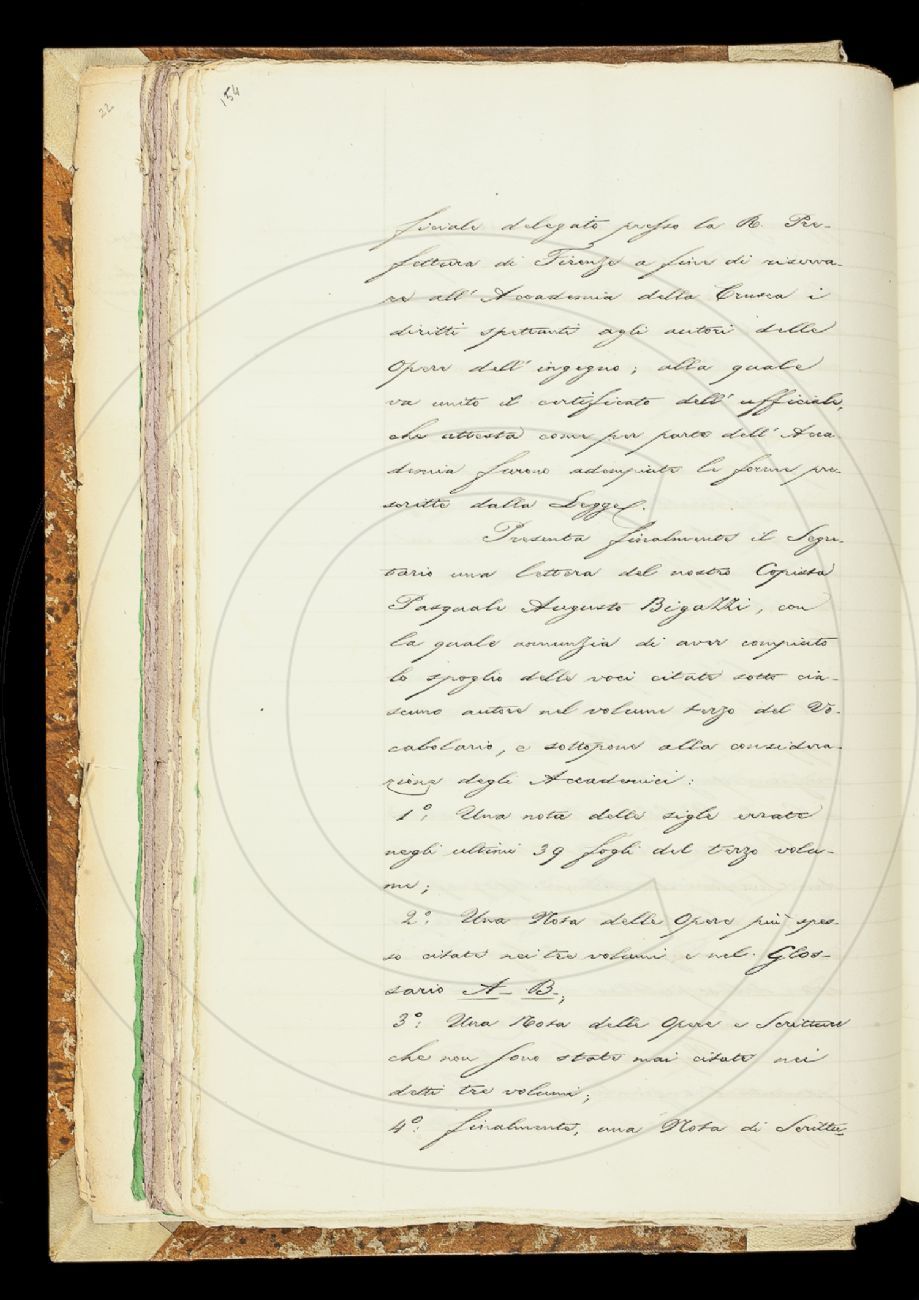 22
154
ficiale delegato presso la R. Pre-
fettura di Firenze a fine di riserva-
re all' Accademia della Crusca i
diritti spettanti agli autori delle
Opere dell' ingegno; alla quale
va unito il certificato dell' ufficiale,
che attesta come per parte dell' Acca-
demia furono adempiute le forme pre-
scritte dalla Legge.
Presenta finalmente il Segre-
tario una lettera del nostro Copista
Pasquale Augusto Bigazzi, con
la quale annunzia di aver compiuto
lo spoglio delle voci citate sotto cia-
scuno autore nel volume terzo del Vo-
cabolario, e sottopone alla considera-
zione degli Accademici:
1º: Una nota delle sigle errate
negli ultimi 39 fogli del terzo volu-
me;
2º: Una Nota delle Opere più spes-
so citate nei tre volumi e nel Glos-
sario A- B-;
3º: Una Nota delle Opere e Scritture
che non sono state mai citate nei
detti tre volumi;
4º: finalmente, una Nota di Scrittu-